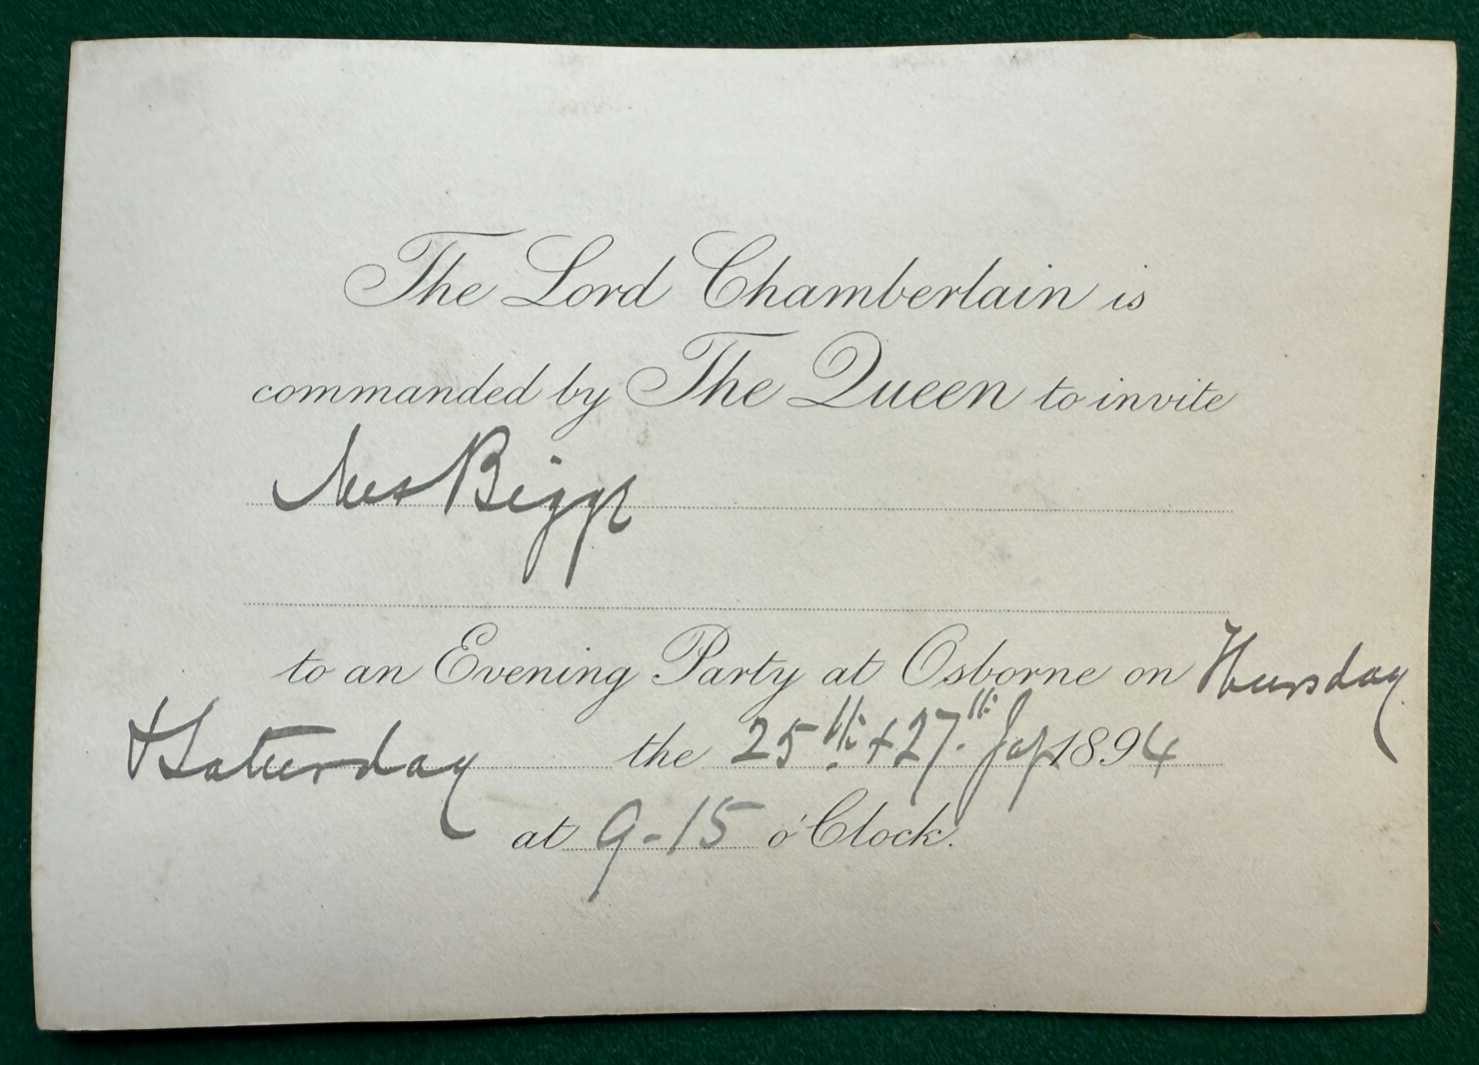 The Lord Chamberlain is
commanded by The Queen to invite
Mrs Biggs
to an Evening Party at Osborne on Thursday
& Saturday the 25th & 27th Jan 1894
at 9-15 o'Clock.